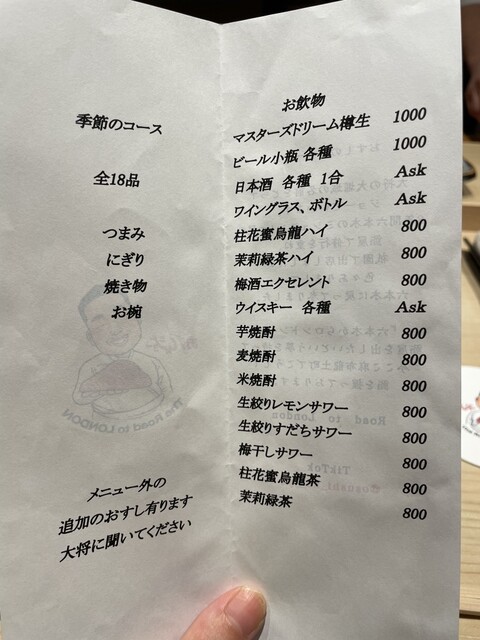 季節のコース
全18品
つまみ
にぎり
焼き物
お椀
The Road to LONDON
メニュー外の
追加のおすし有ります
大将に聞いてください
お飲物
マスターズドリーム樽生 1000
ビール小瓶 各種 1000
日本酒 各種 1合 Ask
ワイングラス、ボトル Ask
柱花蜜烏龍ハイ 800
茉莉緑茶ハイ 800
梅酒エクセレント 800
ウイスキー 各種 Ask
芋焼酎 800
麦焼酎 800
米焼酎 800
生絞りレモンサワー 800
生絞りすだちサワー 800
梅干しサワー 800
柱花蜜烏龍茶 800
茉莉緑茶 800